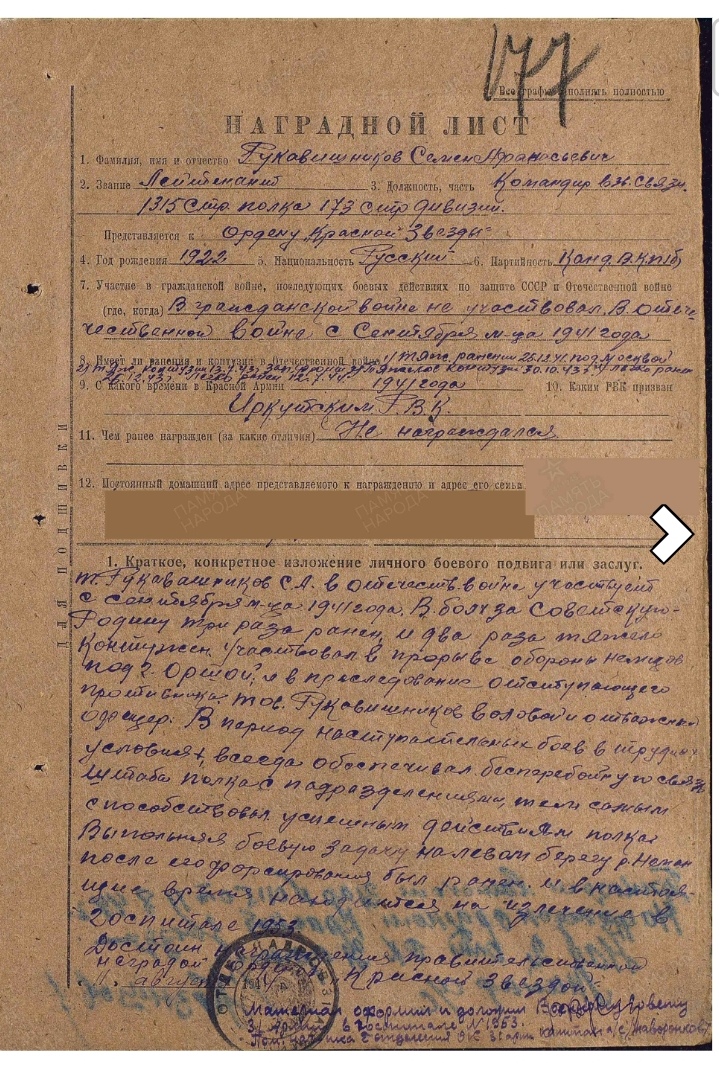 177
Все графы заполнять полностью
НАГРАДНОЙ ЛИСТ
1. Фамилия, имя и отчество Рукавишников Семен Афанасьевич
2. Звание Лейтенант 3. Должность, часть Командир взв. связи.
1315 Стр. полка 173 стр дивизии.
Представляется к Ордену "Красной Звезды"
4. Год рождения 1922 5. Национальность Русский 6. Партийность Канд. В.К.П.(б)
7. Участие в гражданской войне, последующих боевых действиях по защите СССР и Отечественной войне
(где, когда) В гражданской войне не участвовал. В отече-
чественной войне с Сентября м-ца 1941 года
8. Имеет ли ранения и контузии в Отечественной войне 1) тяж. ранение под Москвой
30.10.43 г.
9. С какого времени в Красной Армии 1941 года 10. Каким РВК призван
Иркутским Р.В.К.
11. Чем ранее награжден (за какие отличия) Не награждался
12. Постоянный домашний адрес представляемого к награждению и адрес его семьи
ДЛЯ ПОДШИВКИ
1. Краткое, конкретное изложение личного боевого подвига или заслуг.
т. Рукавишников С.А. в отечеств. войне участвует
с сентября м-ца 1941 года. В боях за Советскую
Родину три раза ранен, и два раза тяжело
контужен. Участвовал в прорыве обороны немцев
под г. Оршой, и в преследование отступающего
противника. тов. Рукавишников волевой и отважный
офицер. В период наступательных боев в трудных
условиях, всегда обеспечивал бесперебойную связь
Штаба полка с подразделениями, тем самым
способствовал успешным действиям полка
Выполняя боевую задачу на левом берегу р. Неман
после его форсирования был ранен и в настоя-
щие время находится на излечение в
Госпитале 1953.
Достоин награждения правительственной
наградой Орденом "Красной Звездой"
августа
ОТДЕЛ НАГРАД
Материал оформил и доложил Военному Совету
31 армии в госпитале № 1953.
Пом. нач-ка отделения ОК 31 арм. капитан а/с Жаворонков
ПАМЯТЬ НАРОДА